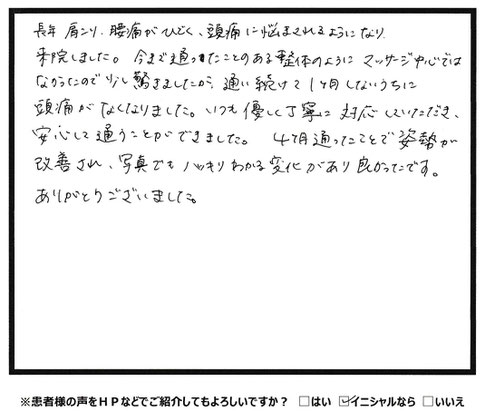 長年 肩こり、腰痛がひどく、頭痛に悩まされるようになり
来院しました。今まで通ったことのある整体のように マッサージ中心では
なかったので少し驚きましたが、通い続けて1ヶ月しないうちに
頭痛がなくなりました。いつも優しく丁寧に対応していただき、
安心して通うことができました。 4ヶ月通ったことで姿勢が
改善され、写真でもハッキリわかる変化があり良かったです。
ありがとうございました。
※患者様の声をHPなどでご紹介してもよろしいですか？ □はい ☑イニシャルなら □いいえ